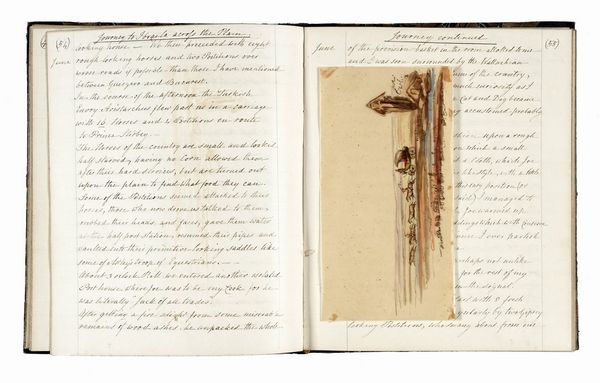 (54)
Journey to Ibraila across the Plain
June
looking house — We then proceeded with eight
rough looking horses and two Postitions over
worse roads if possible than those I have mentioned
between Guirgevo and Bucarest.
In the course of the afternoon the Turkish
Envoy Aristarches flew past us in a carriage
with 16 Horses and 4 Postitions en route
to Prince Stirbey.
The Horses of the country are small and looked
half starved, having no corn allowed them
after their hard services, but are turned out
upon the plain to find what food they can.
Some of the Postitions seemed attached to their
horses, those who now drove us talked to them,
rubbed their heads and faces, gave them water
at the half post Station, resumed their pipes and
vaulted into their primitive looking saddles like
some of Astley's troop of Equestrians. —
About 3 oclock P.M. we entered another isolated
Post house where Joe was to be my Cook for he
was litterally "Jack of all trades".
After getting a fire alight from some miserable
remains of wood ashes, he unpacked the whole
Journey continued
(55)
June
of the provision basket in the room allotted to us
and I was soon surrounded by the Wallachian
men of the country,
much curiosity as I
Cat and Dog became
accustomed probably
upon a rough
on which a small
a Cloth, which Joe
style, with a table
position (or
said) I managed to
Joe warmed up
ever I partook
perhaps not unlike
for the rest of my
the signal
with 8 fresh
by two gipsy
looking Postitions, who swang about from one